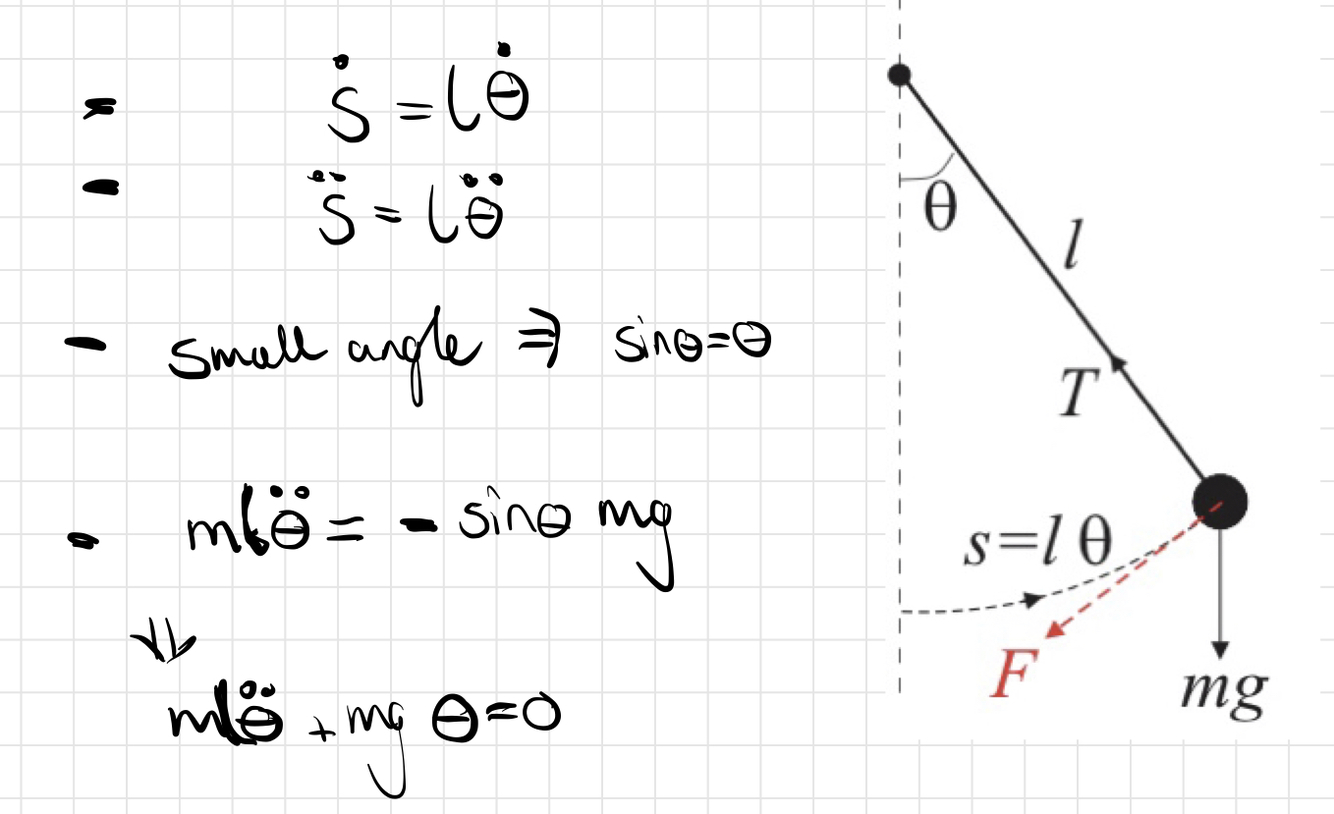 = ṡ = lθ̇
- s̈ = lθ̈
- small angle ⇒ sinθ=θ
- mlθ̈ = - sinθ mg
⇓
mlθ̈ + mg θ=0
θ
l
T
s=l θ
F
mg